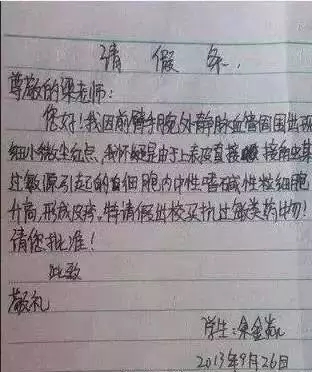 请 假 条
尊敬的梁老师：
您好！我因前臂手腕外静脉血管周围出现
细小微尘红点，我怀疑是由于上表皮直接接触某
过敏源引起的白细胞内中性嗜碱性粒细胞
升高，形成皮疹，特请假出校买抗过敏类药物！
请您批准！
此致
敬礼
学生：余金
2013年9月26日